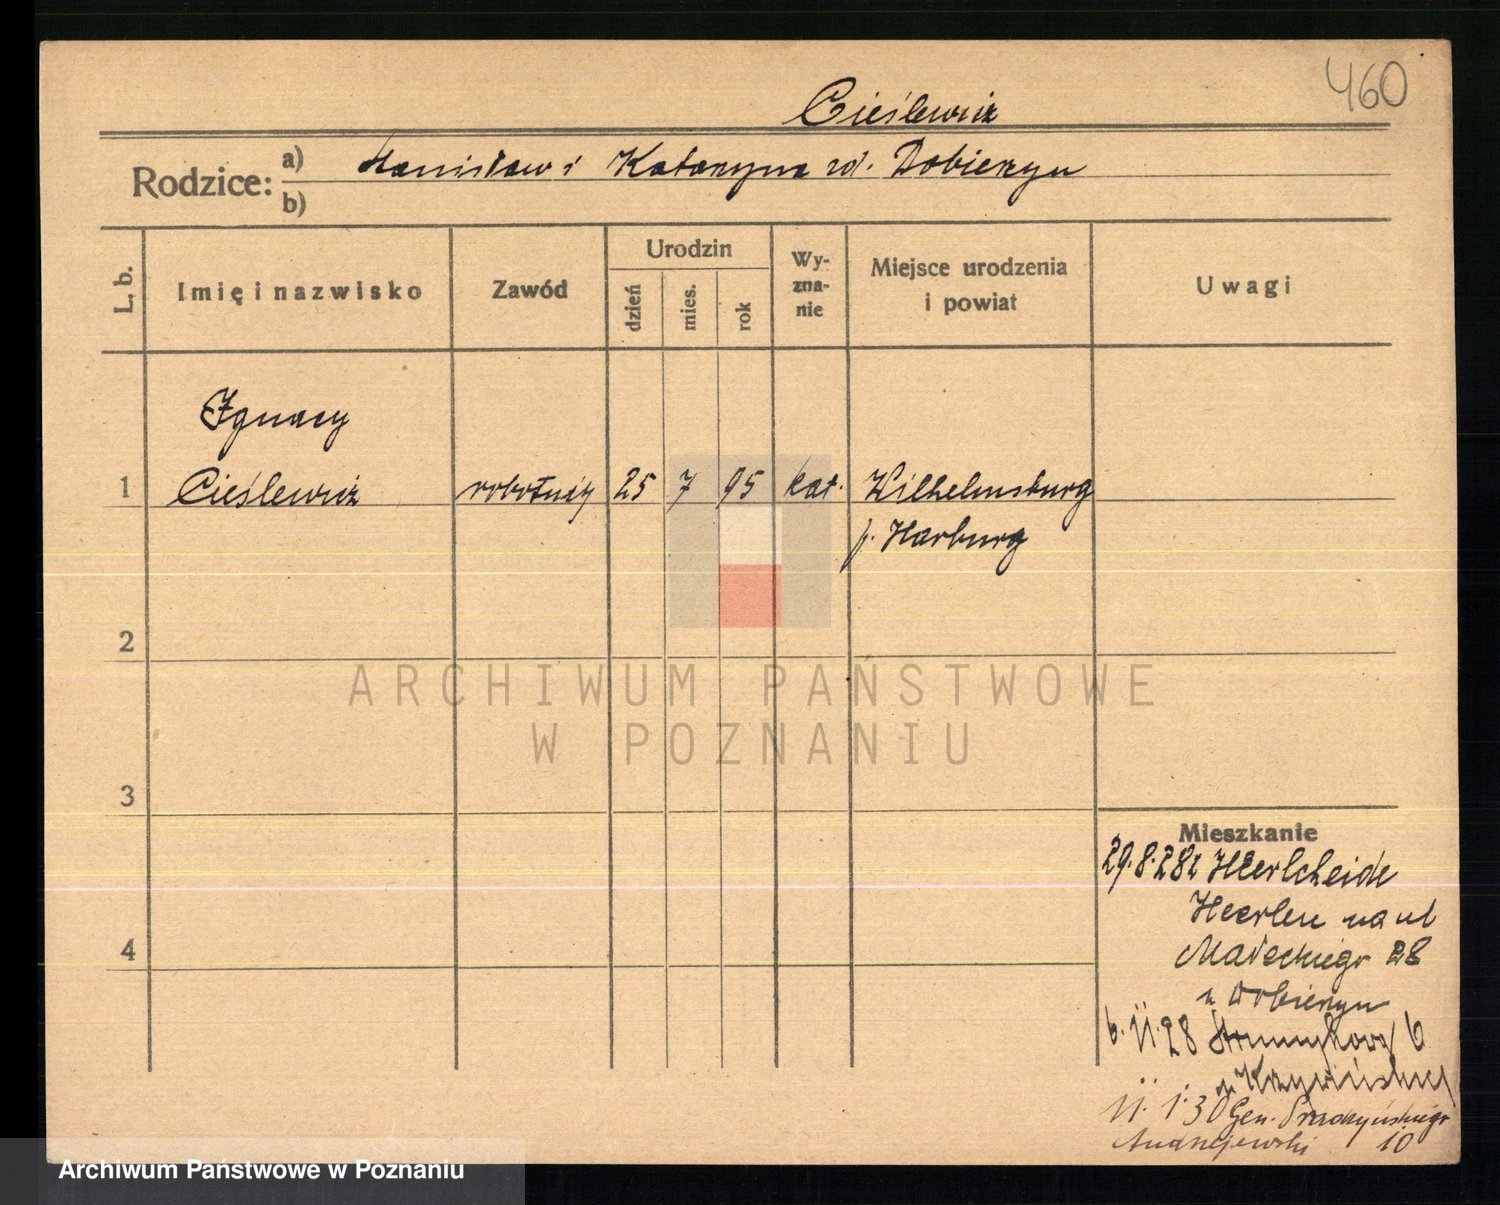 460
Cieślewicz
Rodzice: a) Stanisław i Katarzyna zd. Dobierzyn
b)
L. b. Imię i nazwisko Zawód Urodzin dzień mies. rok Wy-zna-nie Miejsce urodzenia i powiat Uwagi
Ignacy
1 Cieślewicz robotnik 25 7 95 kat. Wilhelmsburg
p. Harburg
2
ARCHIWUM PAŃSTWOWE
W POZNANIU
3
Mieszkanie
29.8.28 z Heerlcheide
Heerlen na ul
4 Małeckiego 28
u Dobierzyn
6.11.28 Strumykowa 6
u Krzywińskiej
11.1.30 Gen. Prądzyńskiego
Andrzejewski 10
Archiwum Państwowe w Poznaniu